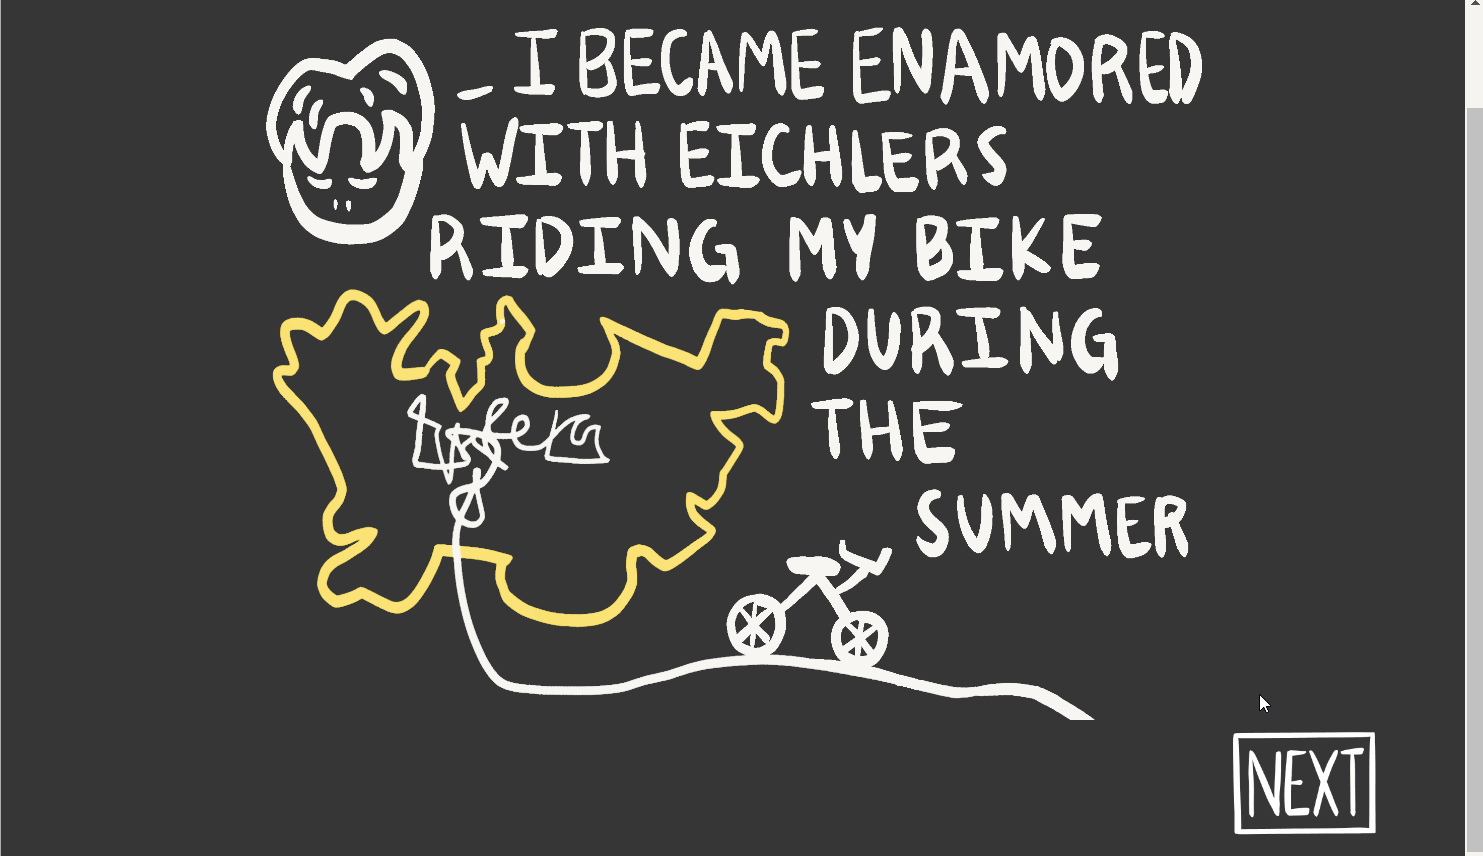 _ I BECAME ENAMORED
WITH EICHLERS
RIDING MY BIKE
DURING
THE
SUMMER
NEXT